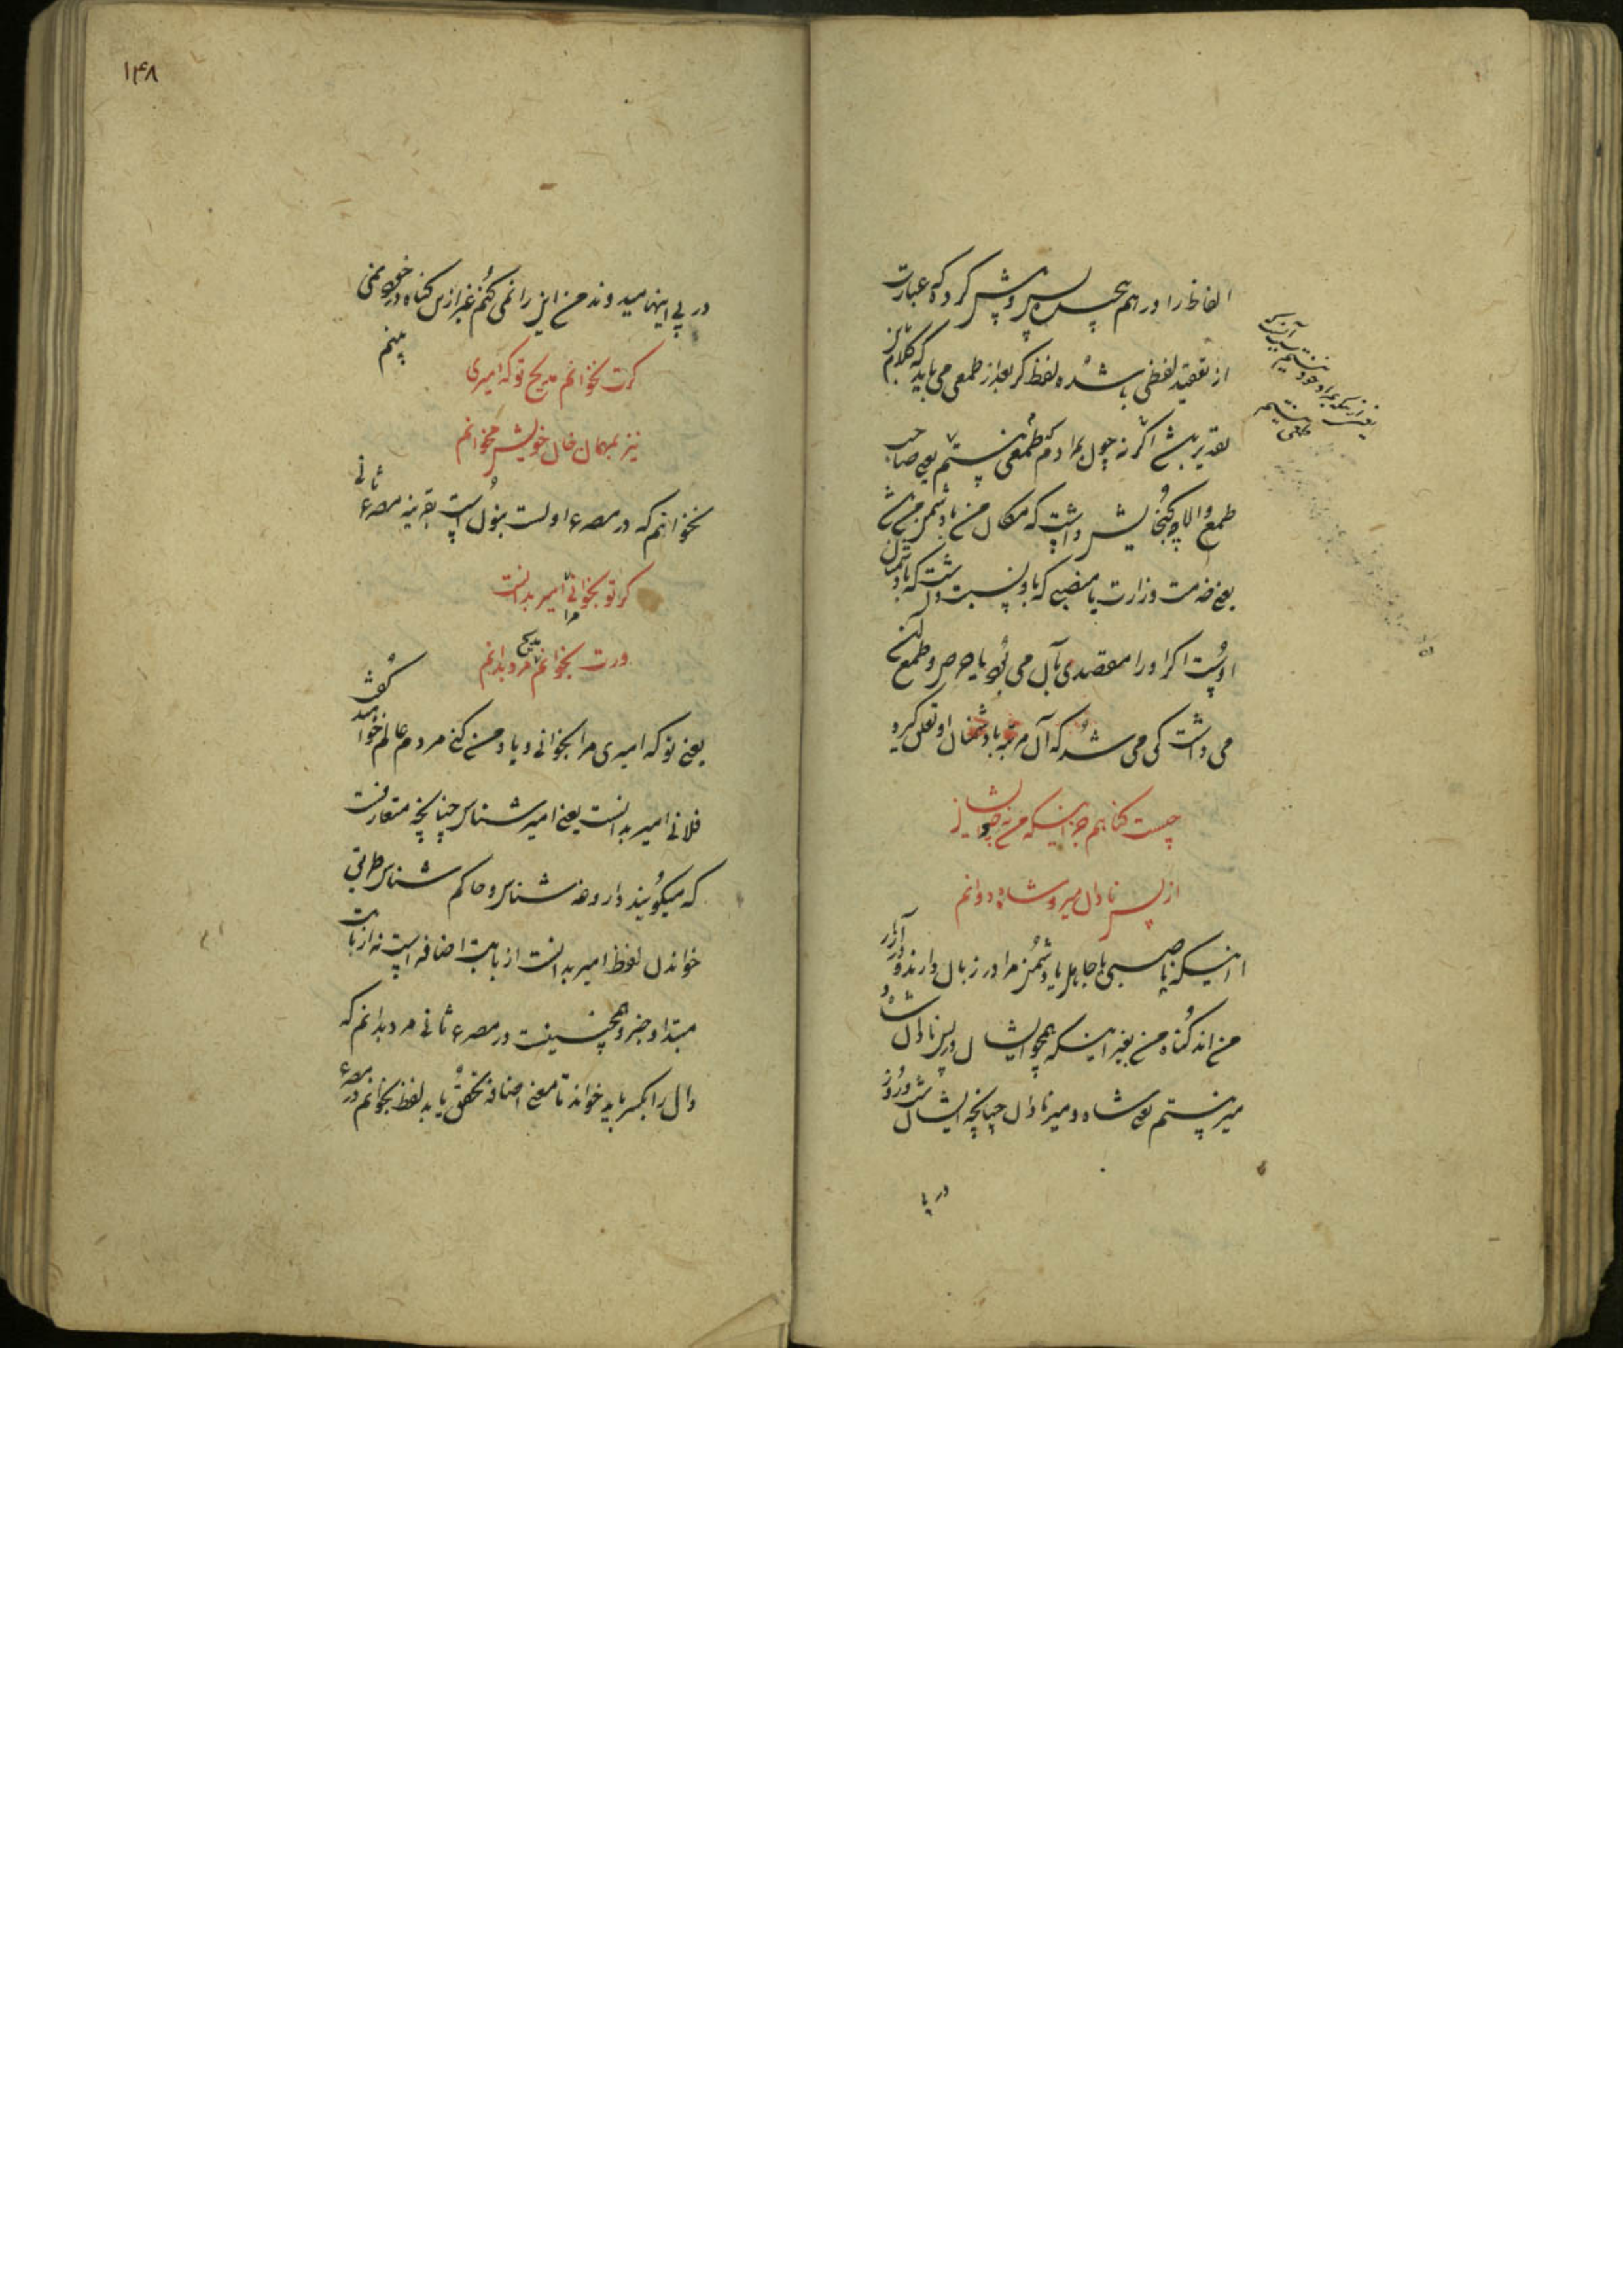 الفاظ را در هم پیچیده پس و پیش کرد که عبارت
از تعقید لفظی باشد لفظ گر بعد از طمعی می باید که کلام
بقدیر نیست اگر نه چون بمرادم طمعی نیستم یعنی صاحب
طمع والا چو گنجایش داشت که مکان من با دشمن من
یعنی خدمت وزارت یا منصبی که باو نسبت داشت که با دشمنان
اوست اگر او را مقصدی بآن می بود یا حرص و طمع آن
می داشت کی می شد که آن مرتبه با دشمنان او تعلق گیرد
چیست گناهم جز اینکه من نه چو ایشان
از پس نادان میر و شاه دوانم
اینکه ناصبی یا جاهل یا دشمن مرا در زبان دارند و در آزار
من اند گناه من بغیر اینکه همچو ایشان در پس نادان شاه و
میر نیستم یعنی شاه و میر نادان چنانچه ایشان شب و روز
در پی
۱۴۸
در پی اینها میدوند من این را نمی کنم غیر ازین گناه در خود نمی
بینم
گرت نخوانم مدیح تو که امیری
نیز بمهمان و خان خویش مخوانم
نخوانم که در مصرع اولست بنون است بقرینه مصرع ثانی
گر تو بخوانی مرا امیر بدانست
ورت بخوانم مدیح مرد بدانم
یعنی تو که امیری مرا بخوانی و یاد من کنی مردم عالم خواهند گفت
فلانی امیر بدانست یعنی امیر شناس چنانچه متعارفست
که میگویند داروغه شناس و حاکم شناس طریق
خواندن لفظ امیر بدانست از بابت اضافه است نه از بابت
مبتدا و خبر و همچنین است در مصرع ثانی مرد بدانم که
دال را بکسر باید خواند تا معنی اضافه تحقق یابد لفظ بخوانم در مصرع